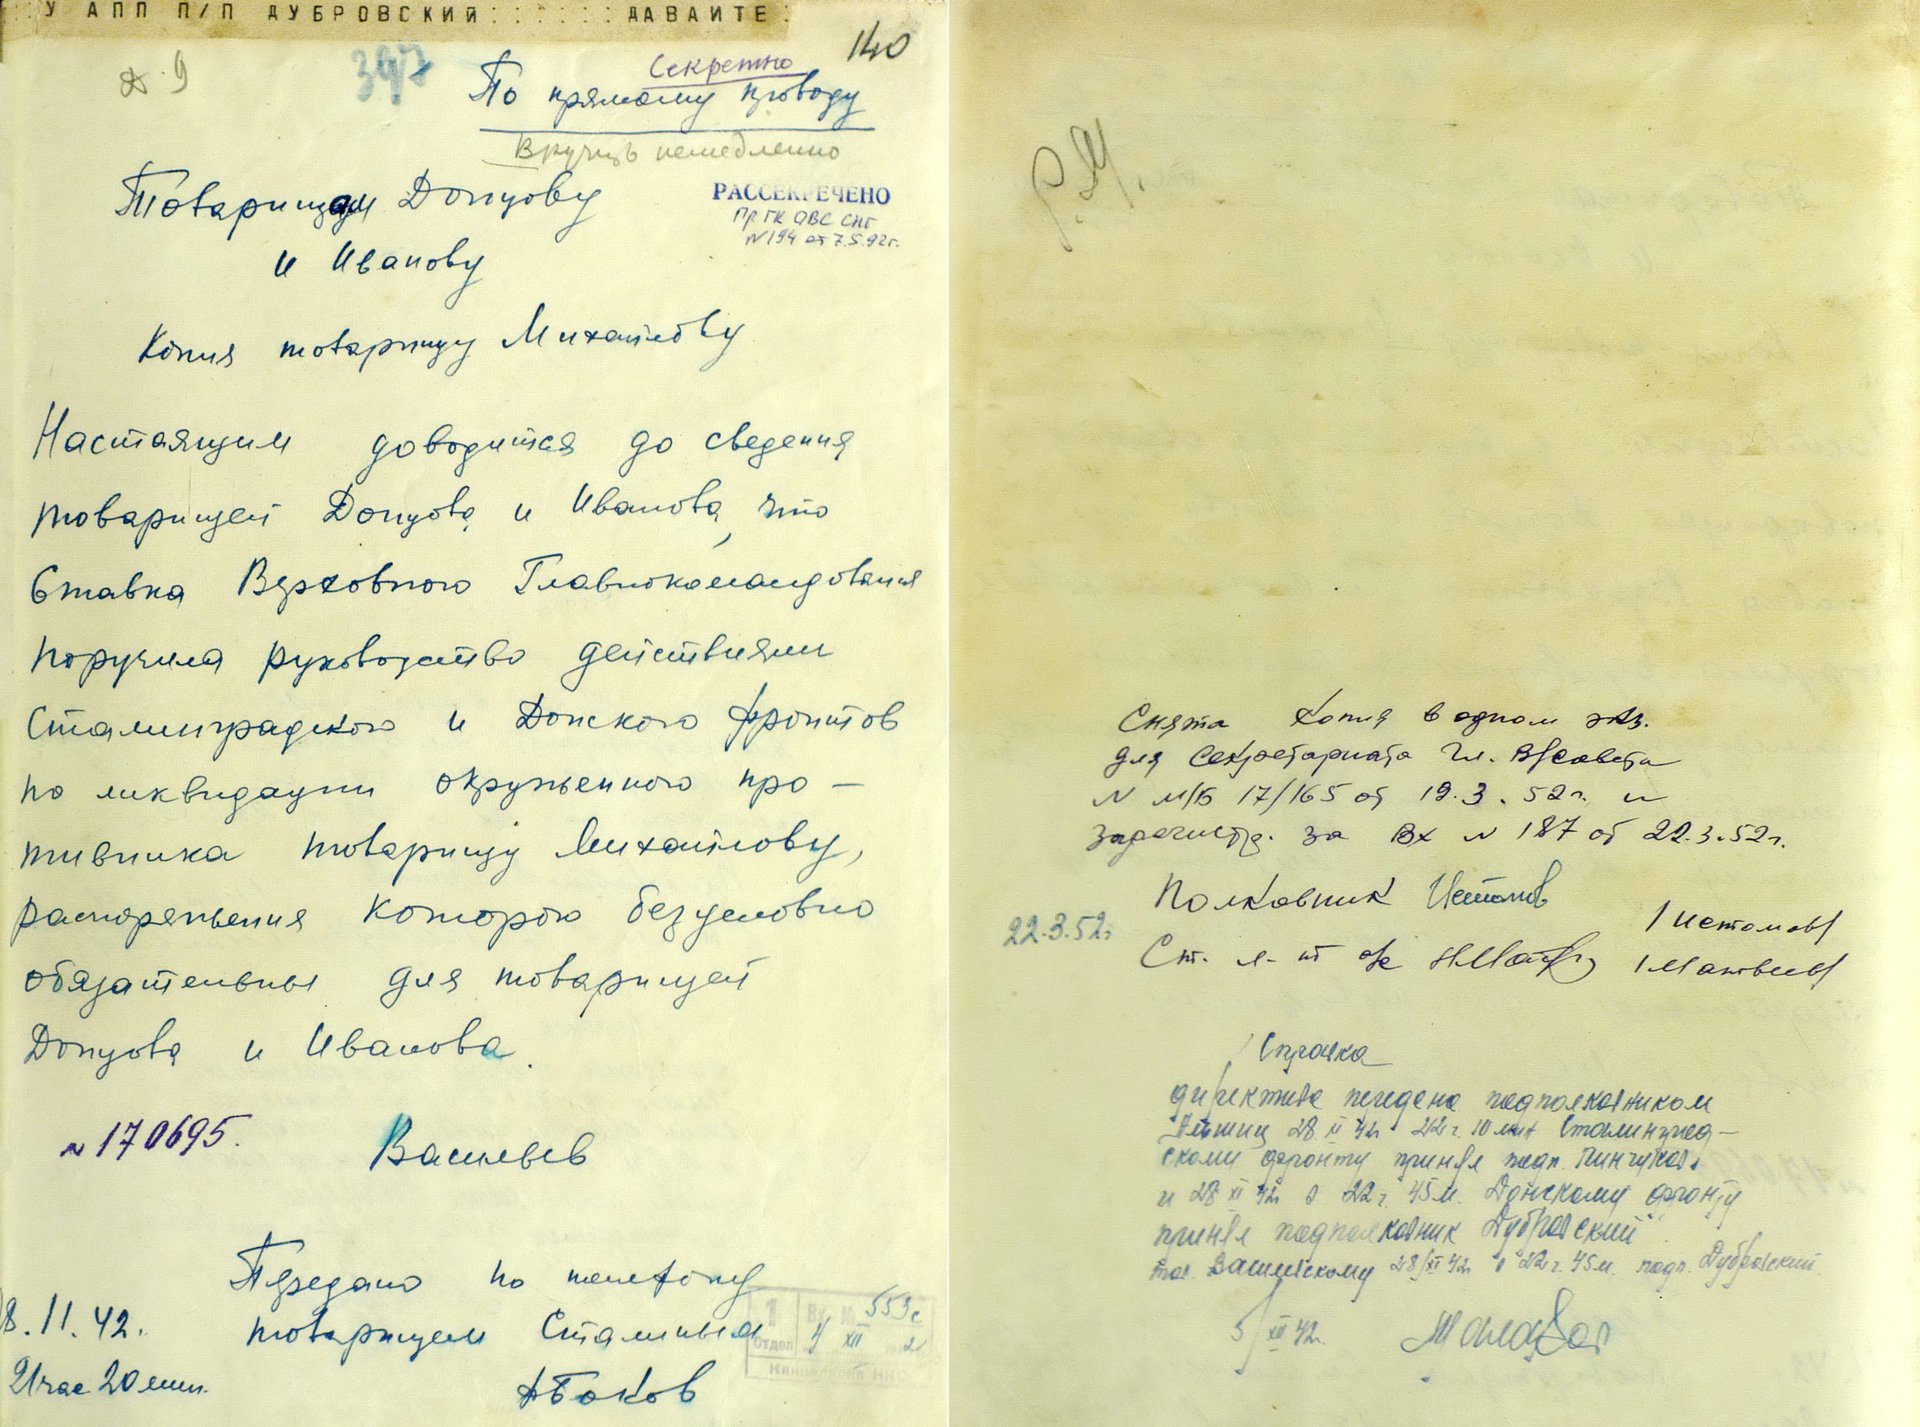 У АПП П/П ДУБРОВСКИЙ : : : : : : : ДАВАЙТЕ :
140
Секретно
По прямому проводу
Вручить немедленно
Товарищам Донцову
РАССЕКРЕЧЕНО
Пр ГК ОВС СНГ
N 194 от 7.5.92г.
и Иванову
Копия товарищу Михайлову
Настоящим доводится до сведения
товарищей Донцова и Иванова, что
Ставка Верховного Главнокомандования
поручила руководство действиями
Сталинградского и Донского фронтов
по ликвидации окруженного про–
тивника товарищу Михайлову,
распоряжения которого безусловно
обязательны для товарищей
Донцова и Иванова.
N 170695.
Васильев
Передано по телефону
товарищем Сталиным
8.11.42.
21 час 20 мин.
Боков
1 отдел
553с
XII
Снята копия в одном экз.
для Секретариата Гл. В/Совета
N М/Б 17/165 от 19.3.52г. и
зарегистр. за Вх N 187 от 22.3.52г.
Полковник Истомов
/Истомов/
22.3.52г.
Ст. л-т
/Матвеев/
Справка
директива передана подполковником
28 XI 42 22 г. 10 мин Сталинград–
скому фронту принял подп. Пинчуков
и 28 XI 42 в 22 г. 45 м. Донскому фронту
принял подполковник Дубровский
тов. Василевскому 28/XI 42 в 22 г. 45 м. подп. Дубровский.
5/XII 42г.